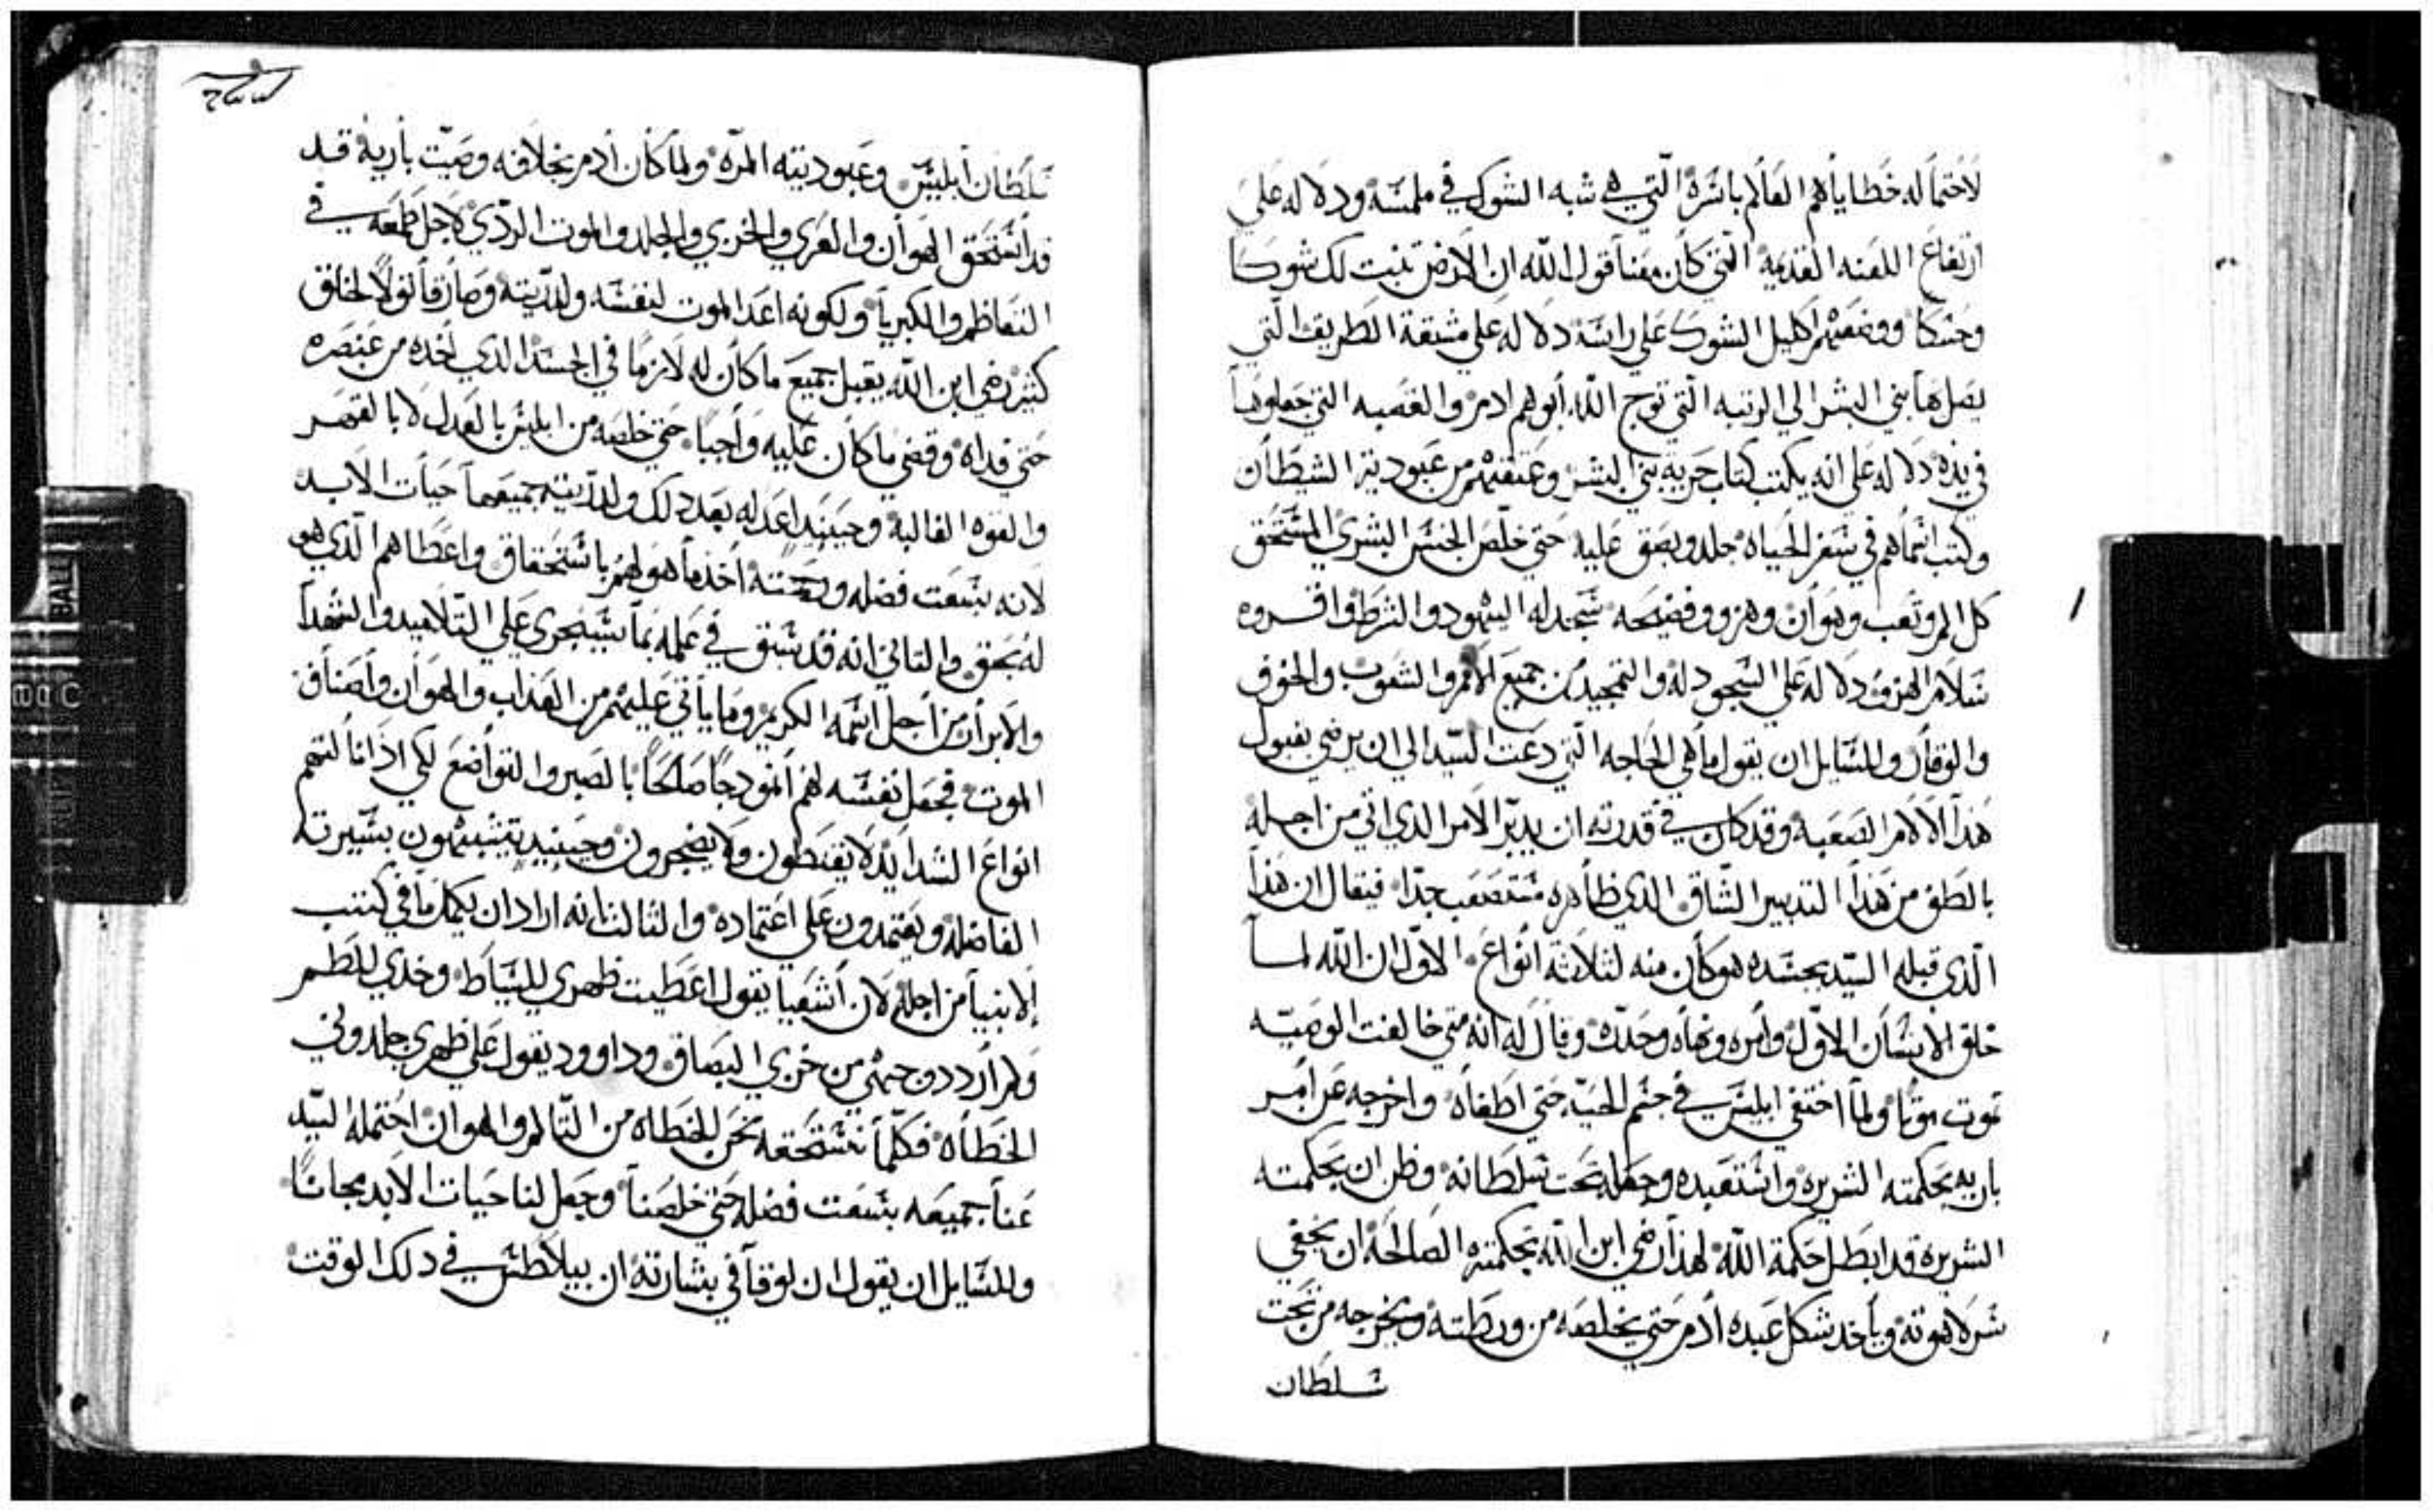 لاحتماله خطاياهم العالم باسره التي هي شبه الشوك في ملمسه ودلاله علي
ارتفاع اللعنه القديمه التي كان معنا قول الله ان الارض تنبت لك شوكا
وحسكا ووضعهم اكليل الشوك علي راسه دلاله علي مشقة الطريق التي
يصل بها بني البشر الي الرتبه التي توج الله ابوهم ادم والقصبه التي جعلوها
في يده دلاله علي انه يكتب كتاب حرية بني البشر وعتقهم من عبودية الشيطان
وكتب اسماهم في سفر الحياه جلد وبصق عليه حتي خلص الجنس البشري المستحق
كل الم وتعب وهوان وهزو وفضيحه سجد له اليهود والشرط واقروه
سلام الهزؤ دلاله علي السجود له والتمجيد من جميع الامم والشعوب والخوف
والوقار وللسايل ان يقول ما هي الحاجه التي دعت السيد الي ان يرضي بقبول
هذا الالام الصعبه وقد كان في قدرته ان يدبر الامر الدي اتي من اجله
بالطف من هذا التدبير الشاق الذي ظاهره مستصعب جدا فيقال ان هذا
الذي قبله السيد بجسده هو كان منه لثلاثة انواع الاول ان الله لما
خلق الانسان الاول وامره ونهاه وحدده وقال له انه متي خالفت الوصيه
تموت موتا ولما اختفي ابليس في جسم الحيه حتي اطغاه واخرجه عن امر
باريه بحكمته الشريره واستعبده وجعله تحت سلطانه وظن ان بحكمته
الشريره قد ابطل حكمة الله لهذا رضي ابن الله بحكمته الصالحه ان يخفي
سر لاهوته وياخد شكل عبده ادم حتي يخلصه من ورطته ويخرجه من تحت
سلطان
سلطان ابليس وعبوديته المره ولما كان ادم بخلافه وصيت باريه قد
قد استحق الهوان والعري والخزي والجلد والموت الردي لاجل طمعه في
التعاظم والكبريا ولكونه اعد الموت لنفسه ولذريته وصار قانولا لخلق
كثير رضي ابن الله يقبل جميع ما كان له لازما في الجسد الدي اخده من عنصره
حتي فداه وقضي ما كان عليه واجبا حتي خلصه من ابليس بالعدل لا بالقهر
والقوه الغالبة وحينيد اعد له بعد دلك ولذريته جميعها حيات الابد
لانه بسعت فضله ورحمته اخذ ما هو لهم باستحقاق واعطاهم الذي هو
له بحق والتاني انه قد سبق في علمه بما سيجري علي التلاميد والشهدا
والابرار من اجل اسمه الكريم وما ياتي عليهم من العذاب والهوان واصناف
الموت فجعل نفسه لهم انمودجا صالحا بالصبر والتواضع لكي اذا نالتهم
انواع الشدايد لا يقنطون ولا يضجرون وحينيد يتشبهون بسيرته
الفاضله ويعتمدون علي اعتماده والثالث انه اراد ان يكمل ما في كتب
الانبيا من اجله لان اشعيا يقول اعطيت ظهري للسياط وخدي للطم
ولم اردد وجهي من خزي البصاق وداوود يقول علي ظهري جلدوني
الخطاه فكلما نستحقه نحن الخطاه من التالم والهوان احتمله السيد
عنا جميعه بسعت فضله حتي خلصنا وجعل لنا حيات الابد مجانا
وللسايل ان يقول ان لوقا في بشارته ان بيلاطس في دلك الوقت